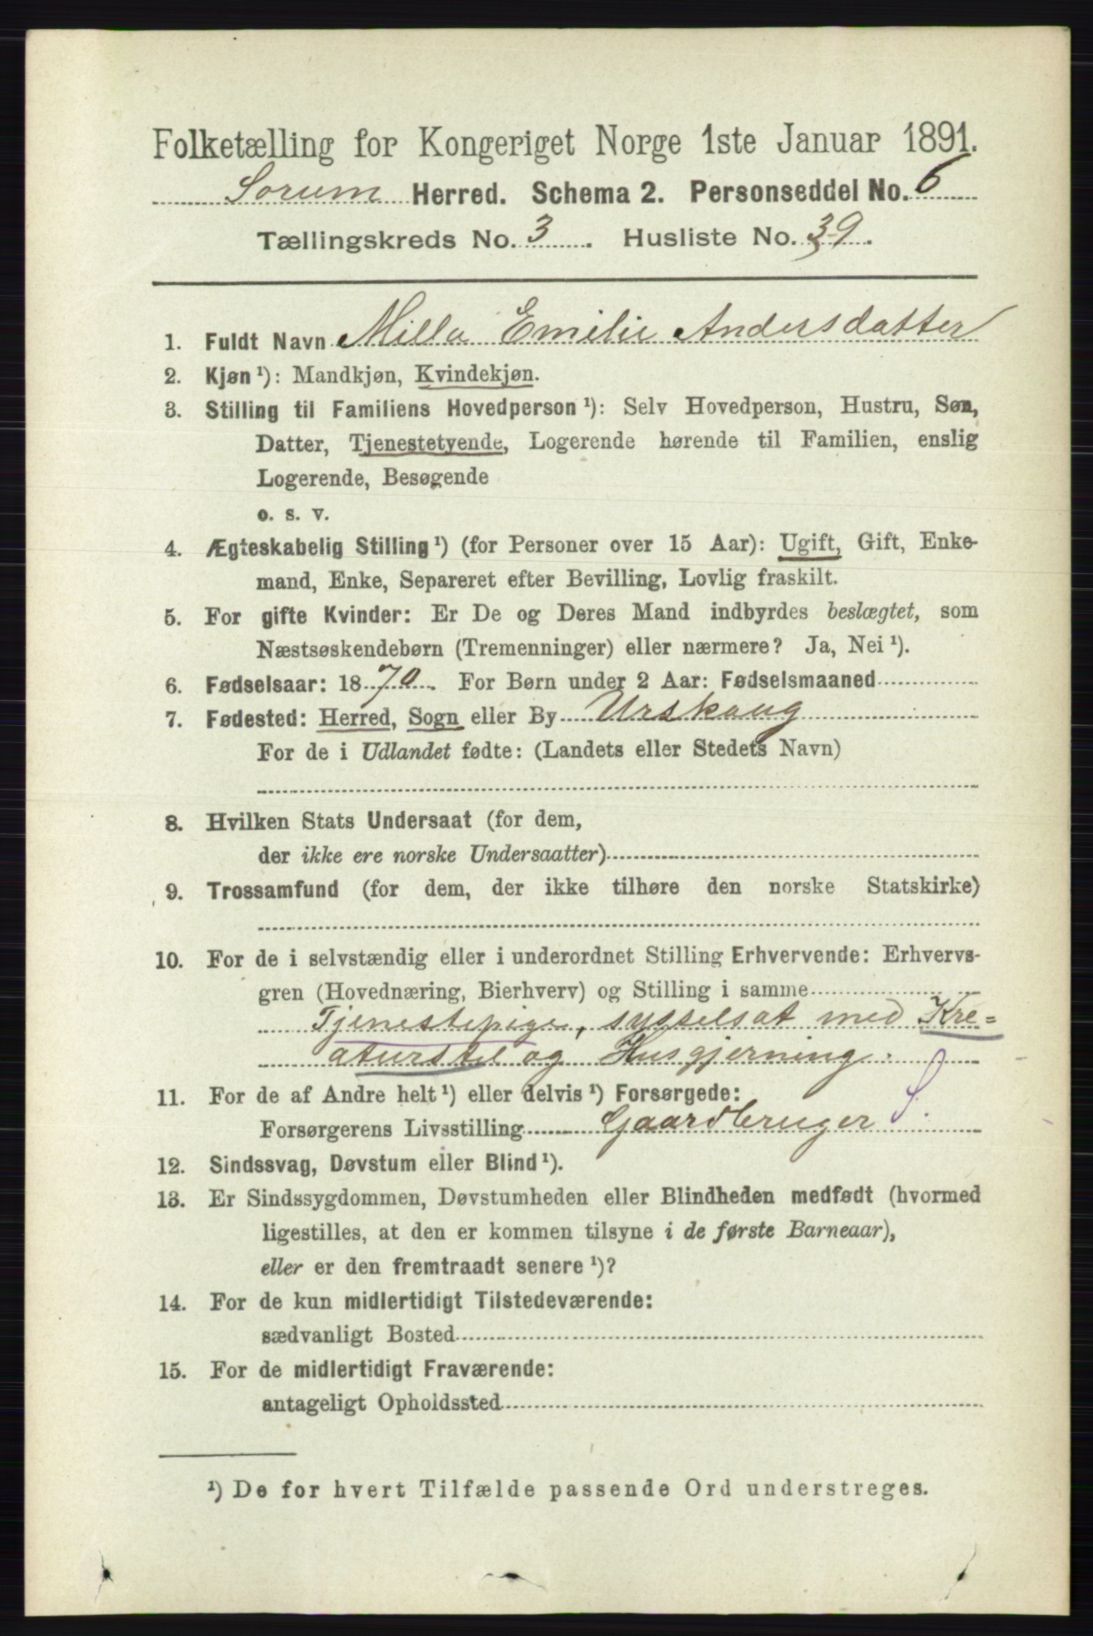 Folketælling for Kongeriget Norge 1ste Januar 1891.
Sorum Herred. Schema 2. Personseddel No. 6
Tællingskreds No. 3. Husliste No. 39.
1. Fuldt Navn Milla Emilie Andersdatter
2. Kjøn ¹): Mandkjøn, Kvindekjøn.
3. Stilling til Familiens Hovedperson ¹): Selv Hovedperson, Hustru, Søn,
Datter, Tjenestetyende, Logerende hørende til Familien, enslig
Logerende, Besøgende
o. s. v.
4. Ægteskabelig Stilling ¹) (for Personer over 15 Aar): Ugift, Gift, Enke-
mand, Enke, Separeret efter Bevilling, Lovlig fraskilt.
5. For gifte Kvinder: Er De og Deres Mand indbyrdes beslægtet, som
Næstsøskendebørn (Tremenninger) eller nærmere? Ja, Nei ¹).
6. Fødselsaar: 1870. For Børn under 2 Aar: Fødselsmaaned
7. Fødested: Herred, Sogn eller By Urskoug
For de i Udlandet fødte: (Landets eller Stedets Navn)
8. Hvilken Stats Undersaat (for dem,
der ikke ere norske Undersaatter)
9. Trossamfund (for dem, der ikke tilhøre den norske Statskirke)
10. For de i selvstændig eller i underordnet Stilling Erhvervende: Erhvervs-
gren (Hovednæring, Bierhverv) og Stilling i samme
Tjenestepige, sysselsat med Kre=
aturstel og Husgjerning.
11. For de af Andre helt ¹) eller delvis ¹) Forsørgede:
Forsørgerens Livsstilling Gaardbruger S.
12. Sindssvag, Døvstum eller Blind ¹).
13. Er Sindssygdommen, Døvstumheden eller Blindheden medfødt (hvormed
ligestilles, at den er kommen tilsyne i de første Barneaar),
eller er den fremtraadt senere ¹)?
14. For de kun midlertidigt Tilstedeværende:
sædvanligt Bosted
15. For de midlertidigt Fraværende:
antageligt Opholdssted
¹) De for hvert Tilfælde passende Ord understreges.